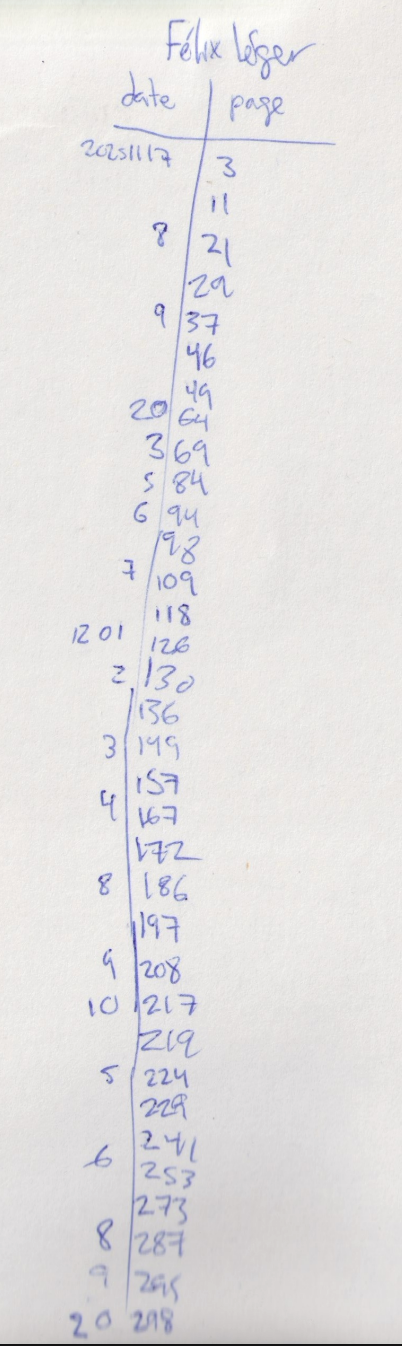 Félix Léger
date page
20251117 3
11
8 21
29
9 37
46
49
20 64
3 69
5 84
6 94
98
7 109
118
12 01 126
2 130
136
3 149
157
4 167
172
8 186
197
9 208
10 217
219
5 224
229
241
6 253
273
8 287
9 295
20 298